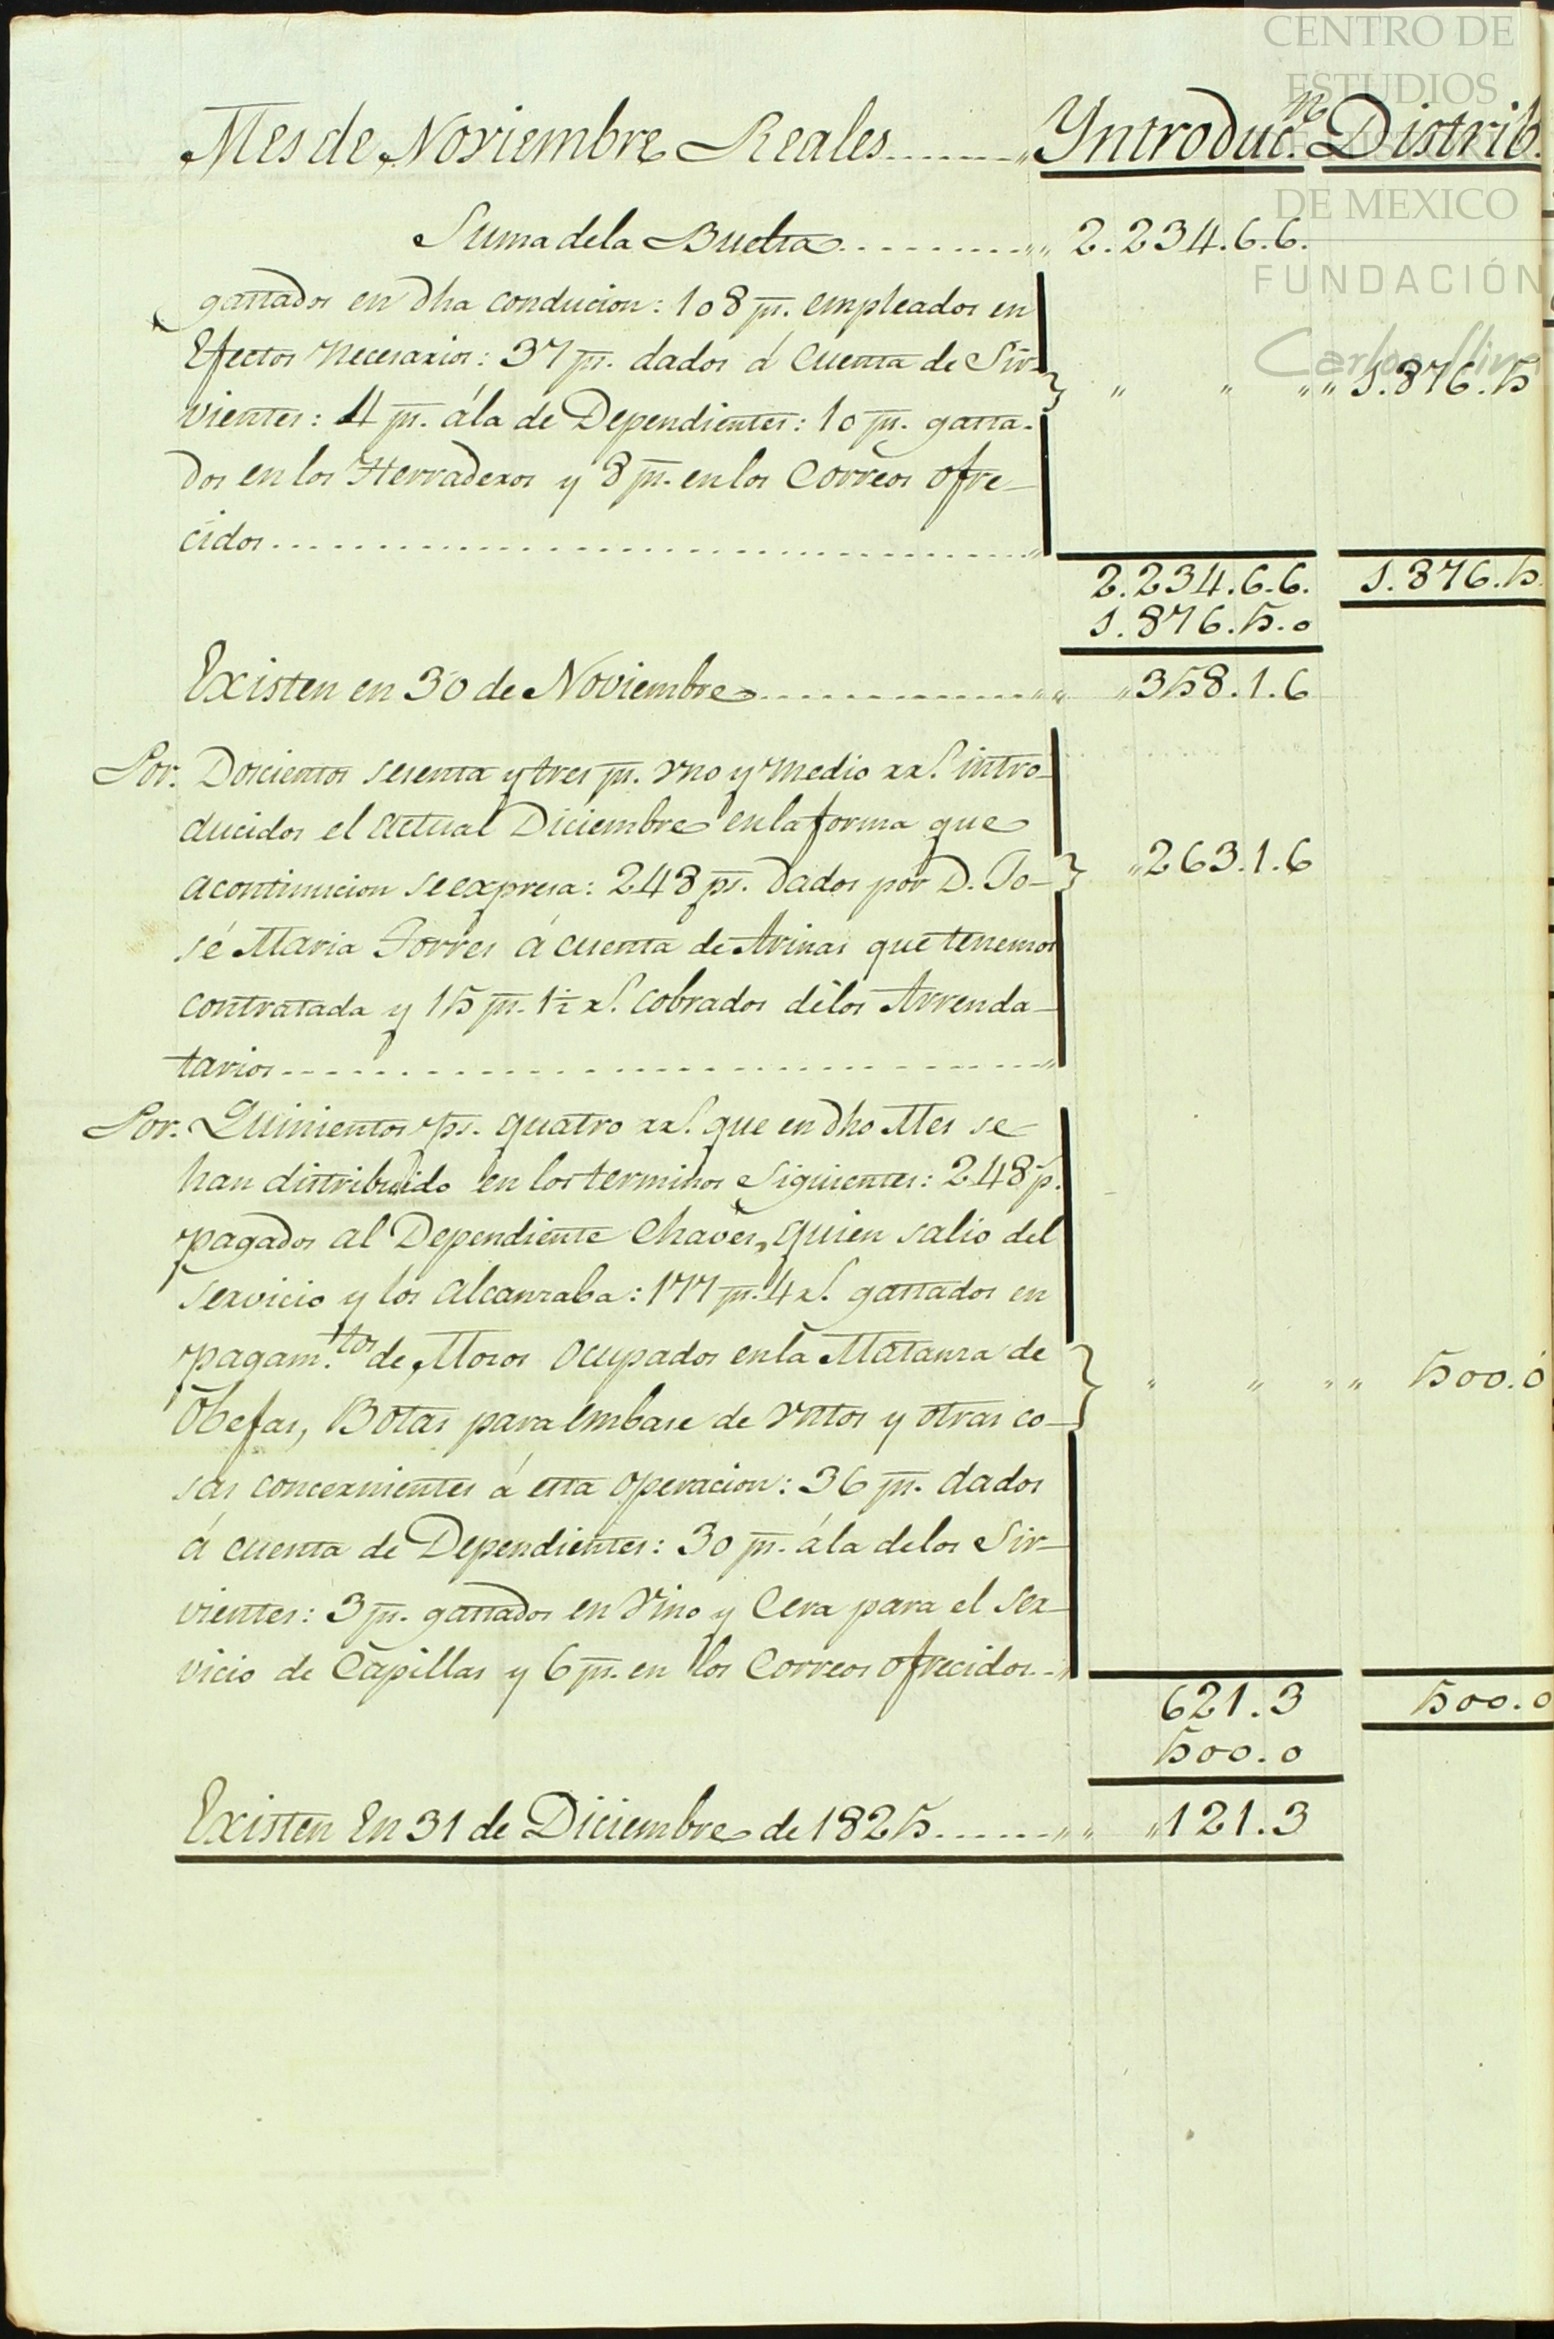 CENTRO DE
ESTUDIOS
DE MEXICO
FUNDACIÓN
Carlos Slim
Mes de Noviembre Reales........ Yntroduc.n Distrib.
Suma dela Buelta............ 2.234.6.6.
gastados en dha conducion: 108 ps. empleados en
Efectos Necesarios: 37 ps. dados á Cuenta de Sir-
vientes: 4 ps. ála de Dependientes: 10 ps. gasta- " " " " 1.876.5
dos en los Herraderos y 8 ps. en los Correos ofre-
cidos........................................
2.234.6.6. 1.876.5.
1.876.5.0
Existen en 30 de Noviembre................ " 358.1.6
Por. Dorcientos sesenta y tres ps. uno y medio rr.s intro-
ducidos el actual Diciembre en la forma que
acontinucion se expresa: 248 ps. dados por D. Jo- " 263.1.6
sé Maria Torres á cuenta de Arinas que tenemos
contratada y 15 ps. 1½ r.s cobrados délos Arrenda-
tarios........................................
Por. Quinientos ps. quatro rr.s que en dho Mes se
han distribuido en los terminos Siguientes: 248 p.
pagados al Dependiente Chaves, quien salio del
Servicio y los alcanzaba: 177 ps. 4 r.s gastados en
pagam.tos de Mosos Ocupados en la Matanza de " " " " 500.0
Obefas, Botas para embase de Untos y otras co-
sas concernientes á esta operacion: 36 ps. dados
á cuenta de Dependientes: 30 ps. ála delos Sir-
vientes: 3 ps. gastados en Vino y Cera para el Ser-
vicio de Capillas y 6 ps. en los Correos ofrecidos..
621.3 500.0
500.0
Existen En 31 de Diciembre de 1825........ " 121.3